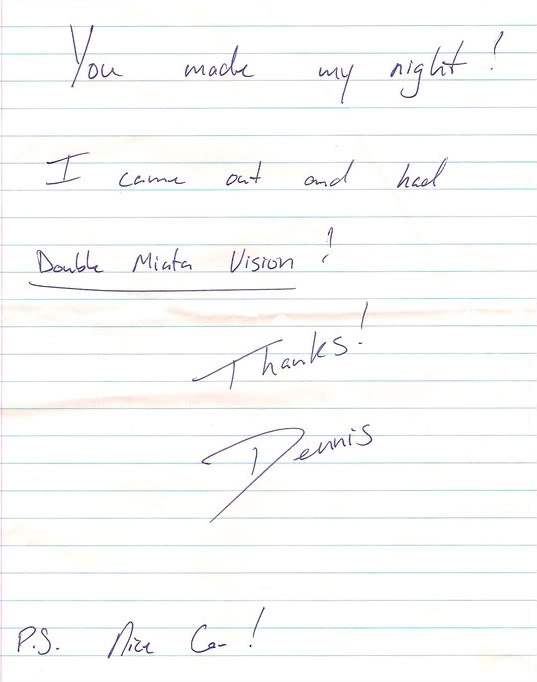 You made my night!
I came out and had
Double Miata Vision!
Thanks!
Dennis
P.S. Nice Car!